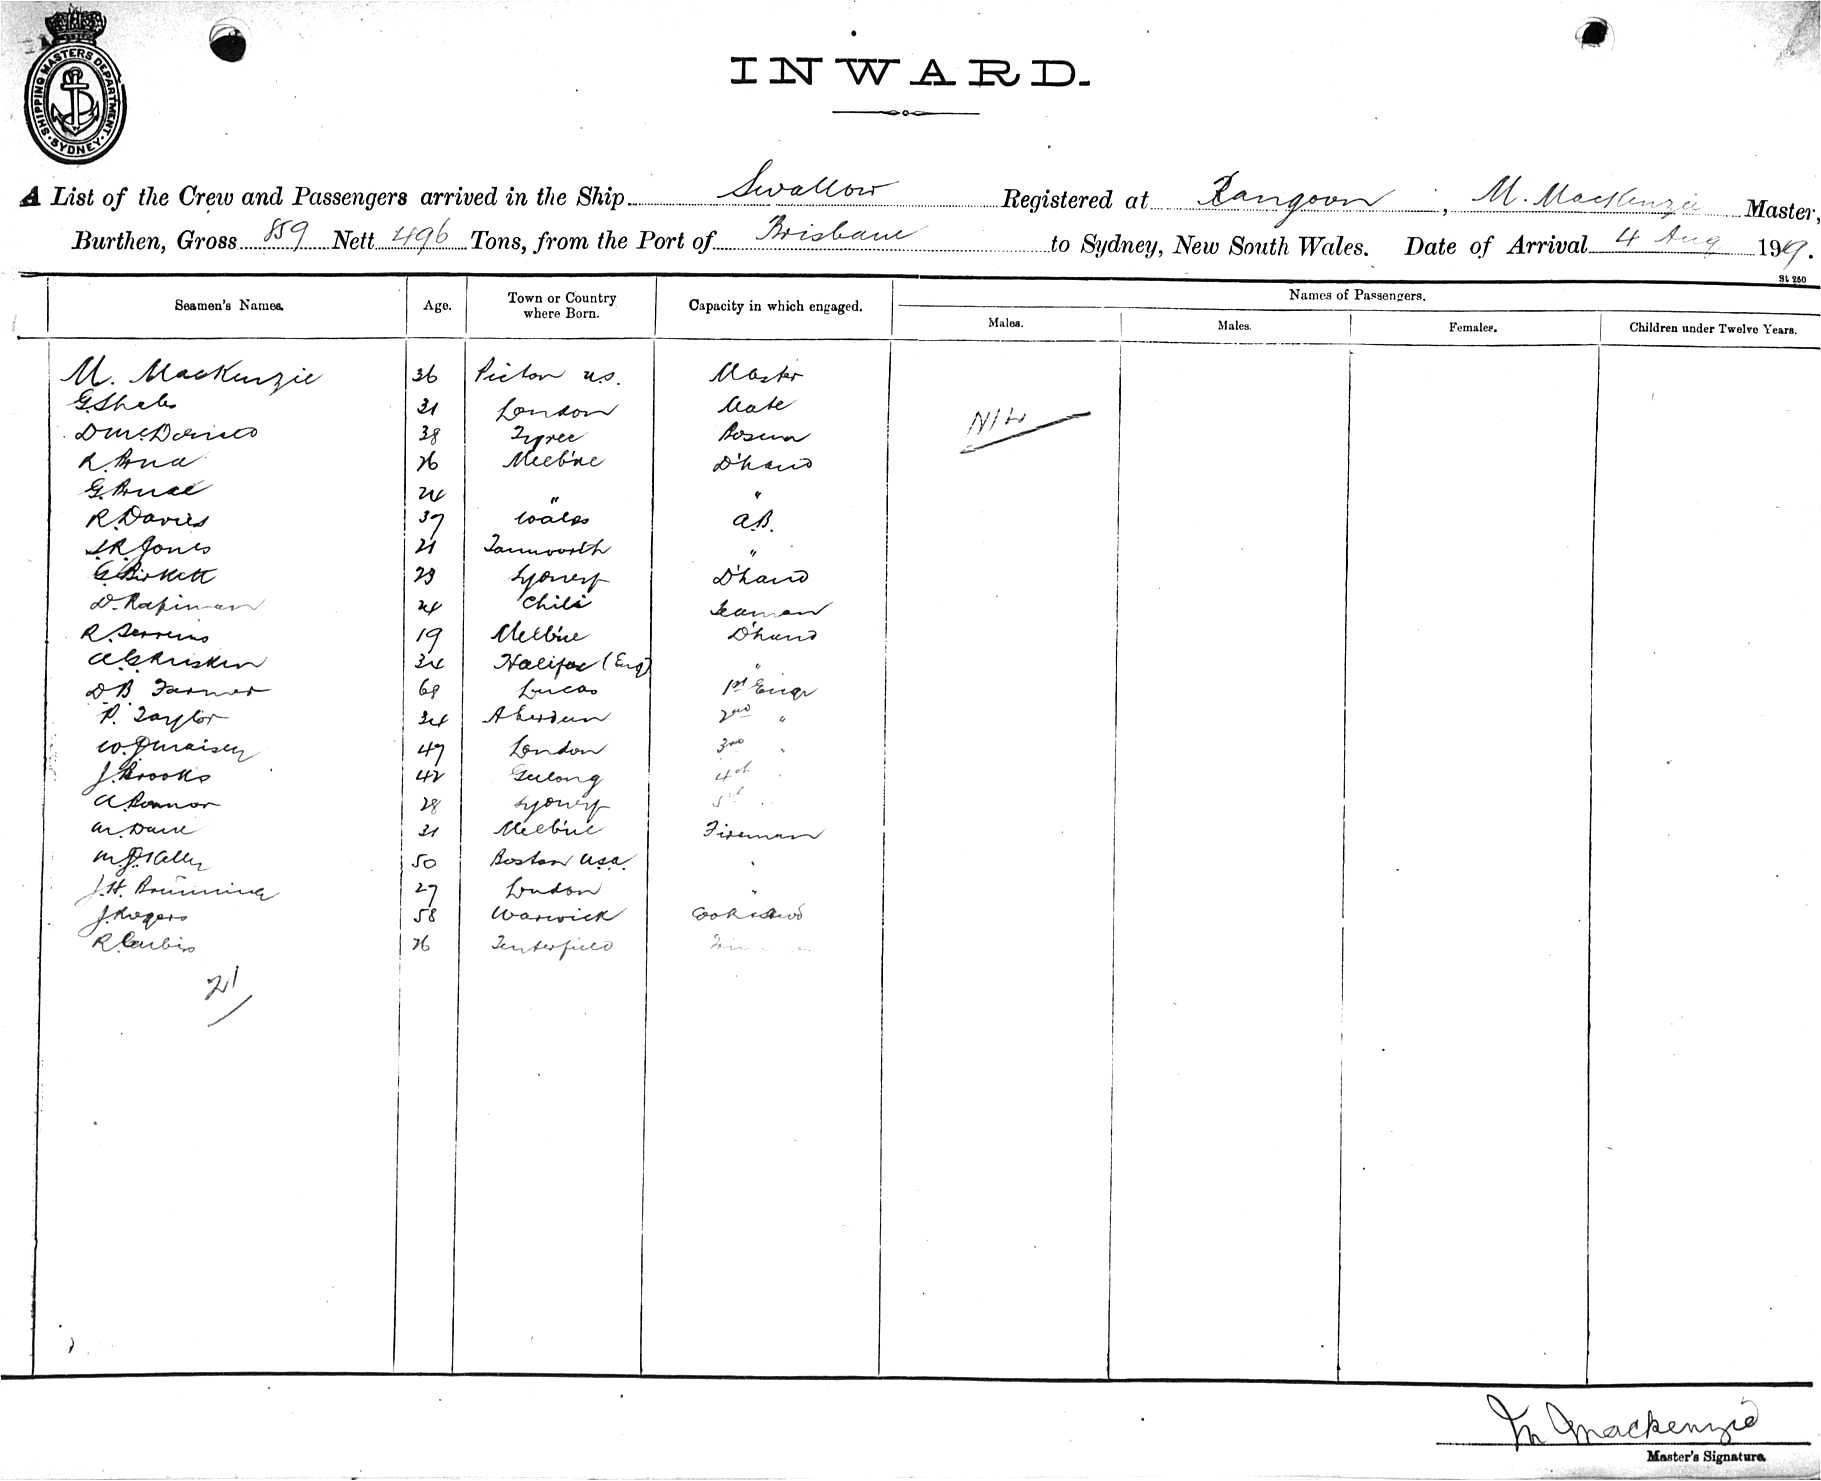 SHIPPING MASTERS DEPARTMENT · SYDNEY ·
INWARD.
A List of the Crew and Passengers arrived in the Ship Swallow Registered at Rangoon, M. MacKenzie Master,
Burthen, Gross 859 Nett 496 Tons, from the Port of Brisbane to Sydney, New South Wales. Date of Arrival 4 Aug 1919.
St 250
Names of Passengers.
Seamen's Names. Age. Town or Country where Born. Capacity in which engaged. Males. Males. Females. Children under Twelve Years.
M. MacKenzie 36 Picton Master
31 London Mate
D McDonald 38 Tyree Bosun
R. 26 Melb'ne D'hand
G. 24 " "
R. Davies 37 Wales A.B.
Jones 21 Tamworth "
G. Birkett 23 Sydney D'hand
D. 24 Chili Seaman
R. 19 Melb'ne D'hand
34 Halifax (Eng) "
D B Farmer Lucas 1st Engr
P. Taylor 34 Aberdeen 2nd "
47 London 3rd "
J. Brooks 42 Geelong 4th
A. 28 Sydney 5th
31 Melb'ne Fireman
M. J. Kelly 50 Boston U.S.A.
J. H. 27 London "
J. Rogers 58 Warwick
R. 26 Tenterfield
Nil
21
M Mackenzie
Master's Signature.